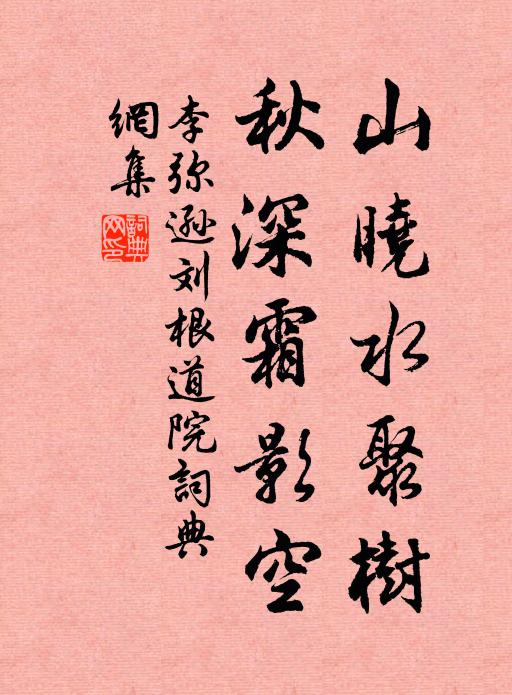 山曉水聚樹
秋深霜影空
李弥遜刘根道院詞典
網集
詞典網印